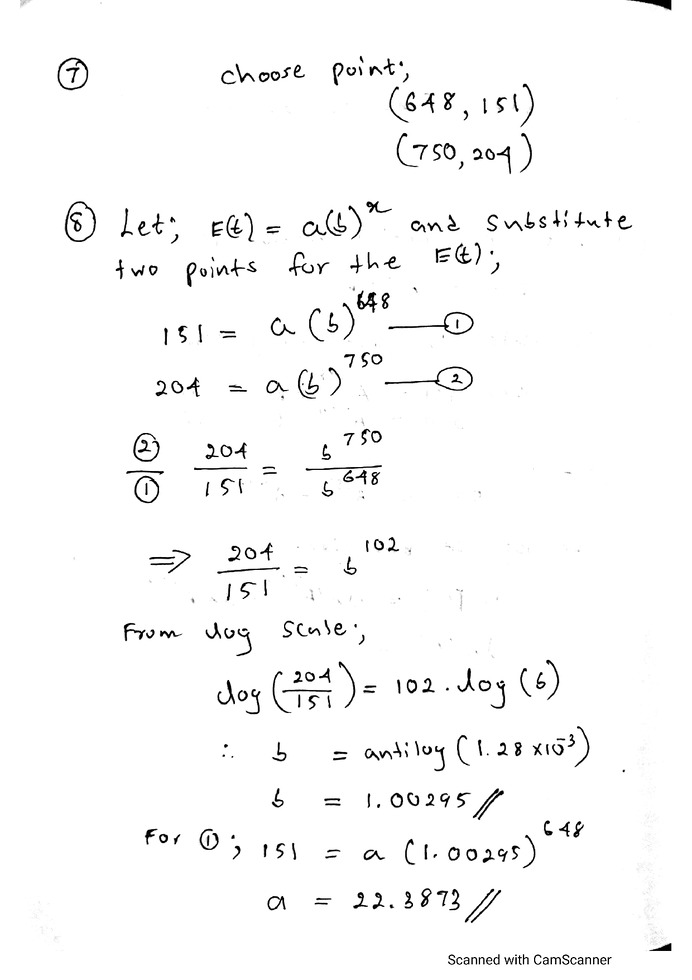 ⑦ choose point;
(648, 151)
(750, 204)
⑧ Let; E(t) = a(b)^x and substitute
two points for the E(t);
151 = a (b)^648 —— ①
204 = a (b)^750 —— ②
②/① 204/151 = b^750/b^648
⇒ 204/151 = b^102
From log scale;
log (204/151) = 102 . log (b)
∴ b = antilog (1.28 ×10^-3)
b = 1.00295 //
For ①; 151 = a (1.00295)^648
a = 22.3873 //
Scanned with CamScanner